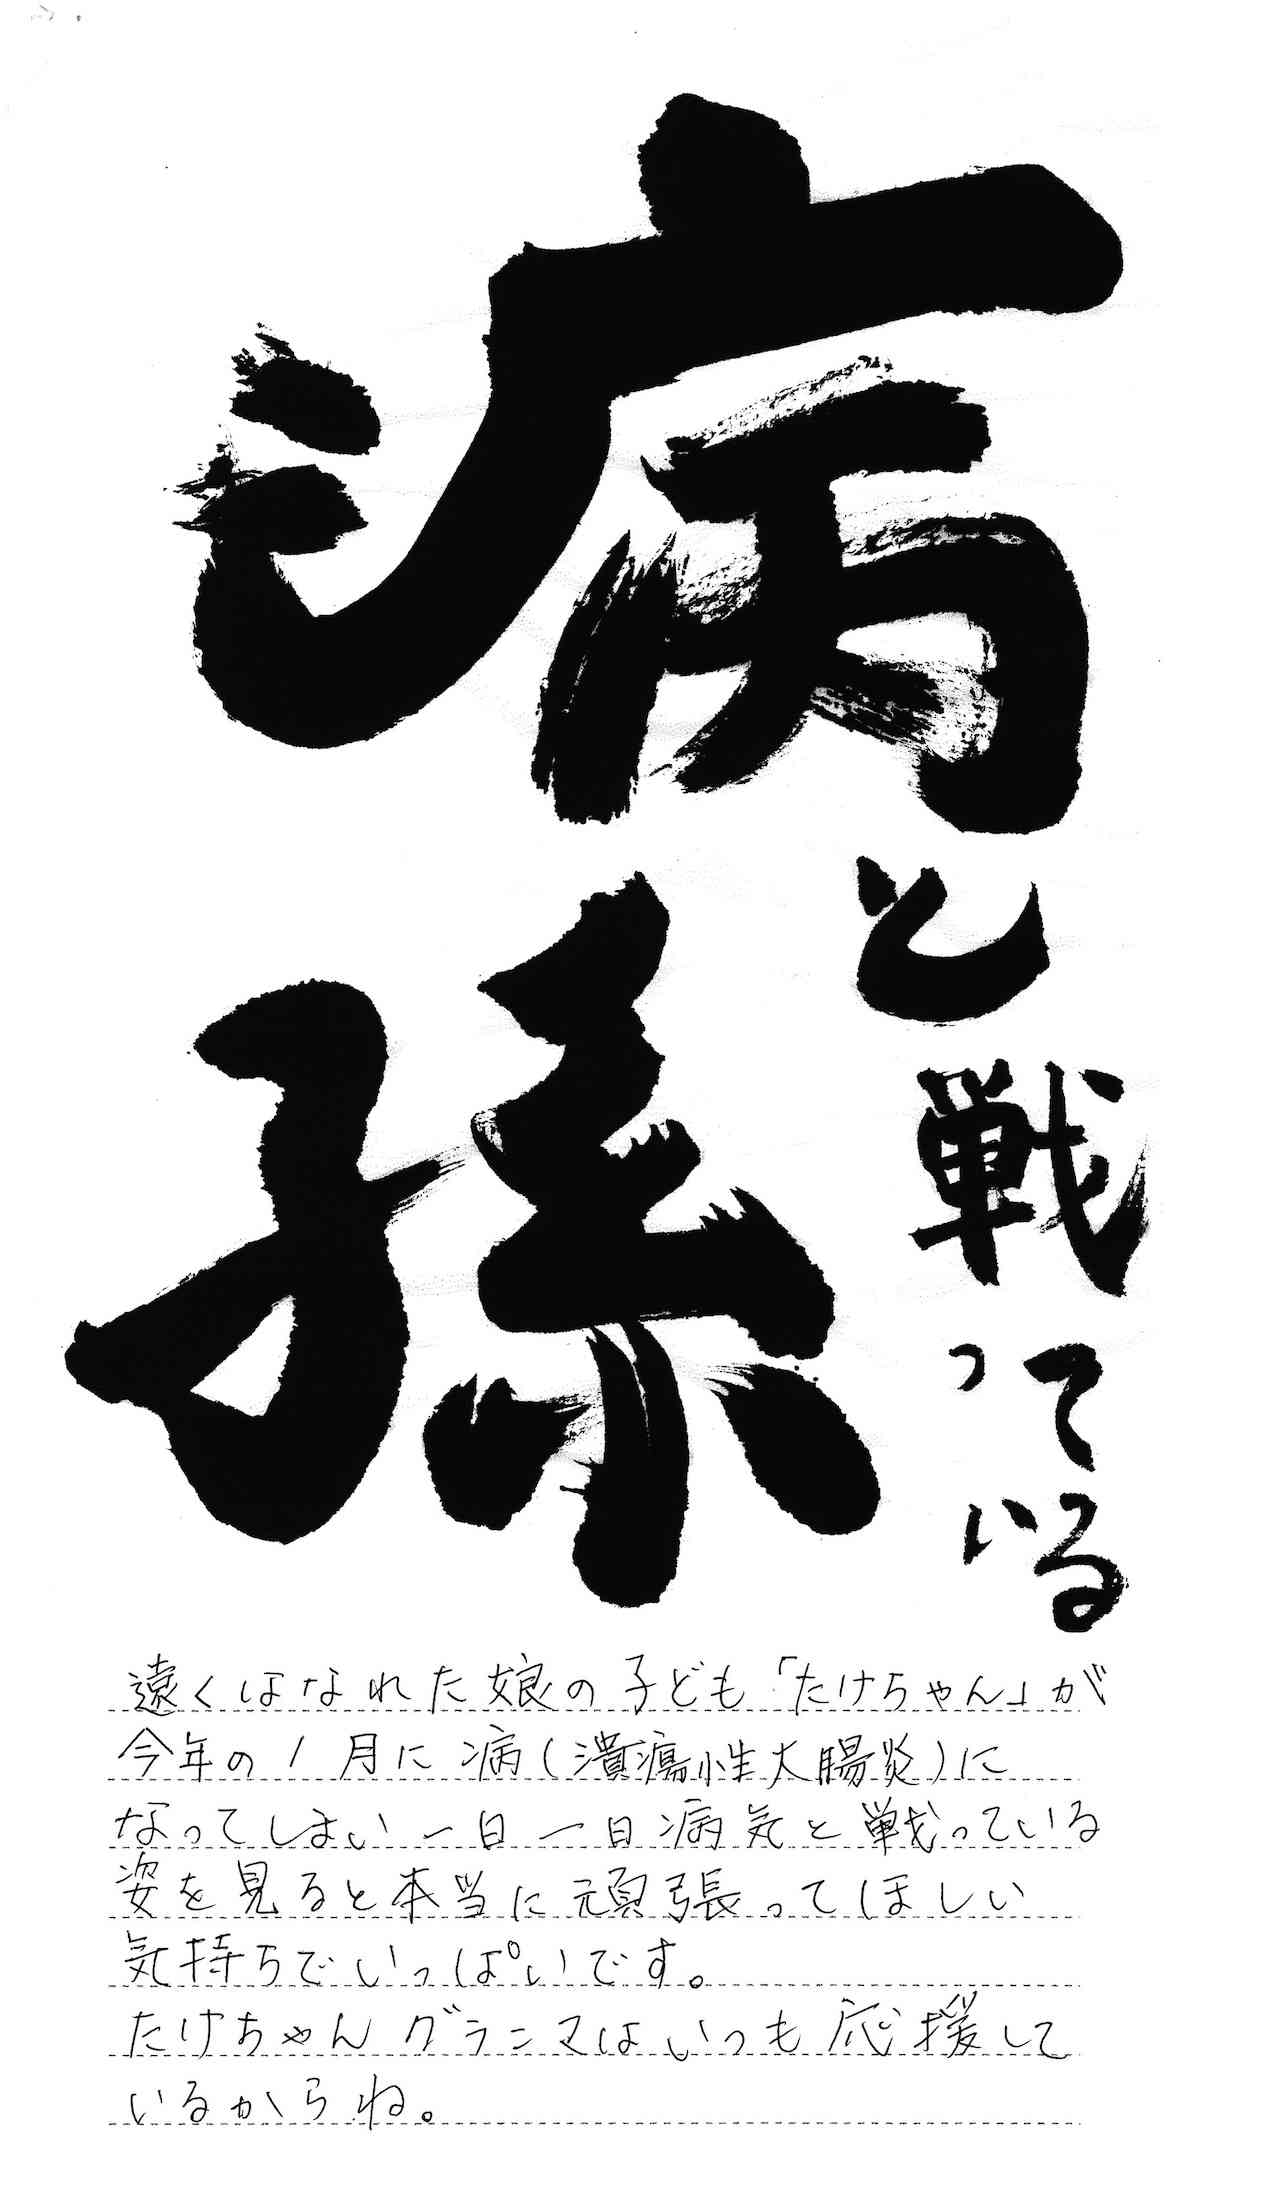 病と戦っている
孫
遠くはなれた娘の子ども「たけちゃん」が
今年の1月に病(潰瘍性大腸炎)に
なってしまい一日一日病気と戦っている
姿を見ると本当に頑張ってほしい
気持ちでいっぱいです。
たけちゃんグランマはいつも応援して
いるからね。